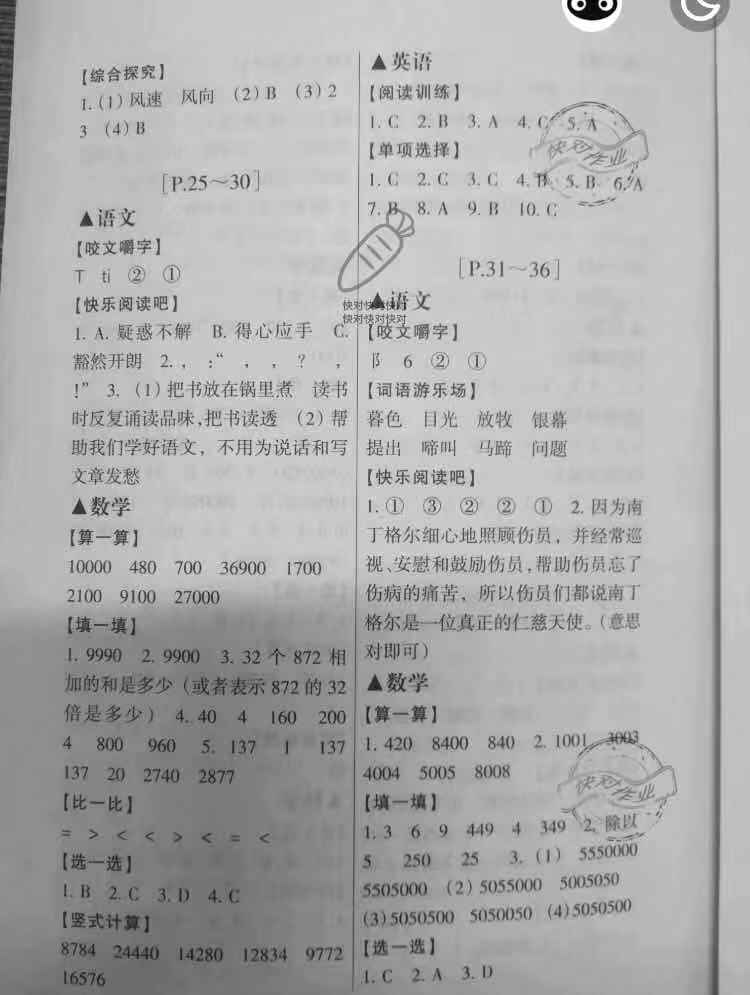 【综合探究】
1. (1) 风速 风向 (2) B (3) 2
3 (4) B
[P.25～30]
▲语文
【咬文嚼字】
T ti ② ①
【快乐阅读吧】
1. A. 疑惑不解 B. 得心应手 C.
豁然开朗 2. , :“ , , ? ,
!” 3. (1) 把书放在锅里煮 读书
时反复诵读品味,把书读透 (2) 帮
助我们学好语文，不用为说话和写
文章发愁
▲数学
【算一算】
10000 480 700 36900 1700
2100 9100 27000
【填一填】
1. 9990 2. 9900 3. 32 个 872 相
加的和是多少（或者表示 872 的 32
倍是多少） 4. 40 4 160 200
4 800 960 5. 137 1 137
137 20 2740 2877
【比一比】
= > < < > < = <
【选一选】
1. B 2. C 3. D 4. C
【竖式计算】
8784 24440 14280 12834 9772
16576
▲英语
【阅读训练】
1. C 2. B 3. A 4. C 5. A
【单项选择】
1. C 2. C 3. C 4. B 5. B 6. A
7. B 8. A 9. B 10. C
[P.31～36]
▲语文
【咬文嚼字】
阝 6 ② ①
【词语游乐场】
暮色 目光 放牧 银幕
提出 啼叫 马蹄 问题
【快乐阅读吧】
1. ① ③ ② ② ① 2. 因为南
丁格尔细心地照顾伤员，并经常巡
视、安慰和鼓励伤员,帮助伤员忘了
伤病的痛苦，所以伤员们都说南丁
格尔是一位真正的仁慈天使。(意思
对即可)
▲数学
【算一算】
1. 420 8400 840 2. 1001 3003
4004 5005 8008
【填一填】
1. 3 6 9 449 4 349 2. 除以
5 250 25 3. (1) 5550000
5505000 (2) 5055000 5005050
(3) 5050500 5050050 (4) 5050500
【选一选】
1. C 2. A 3. D
快对作业
快对快对快对
快对快对快对
快对作业